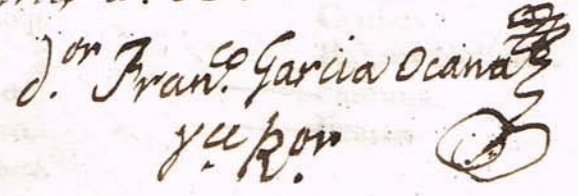 D.or Fran.co Garcia Ocana
yce R.or